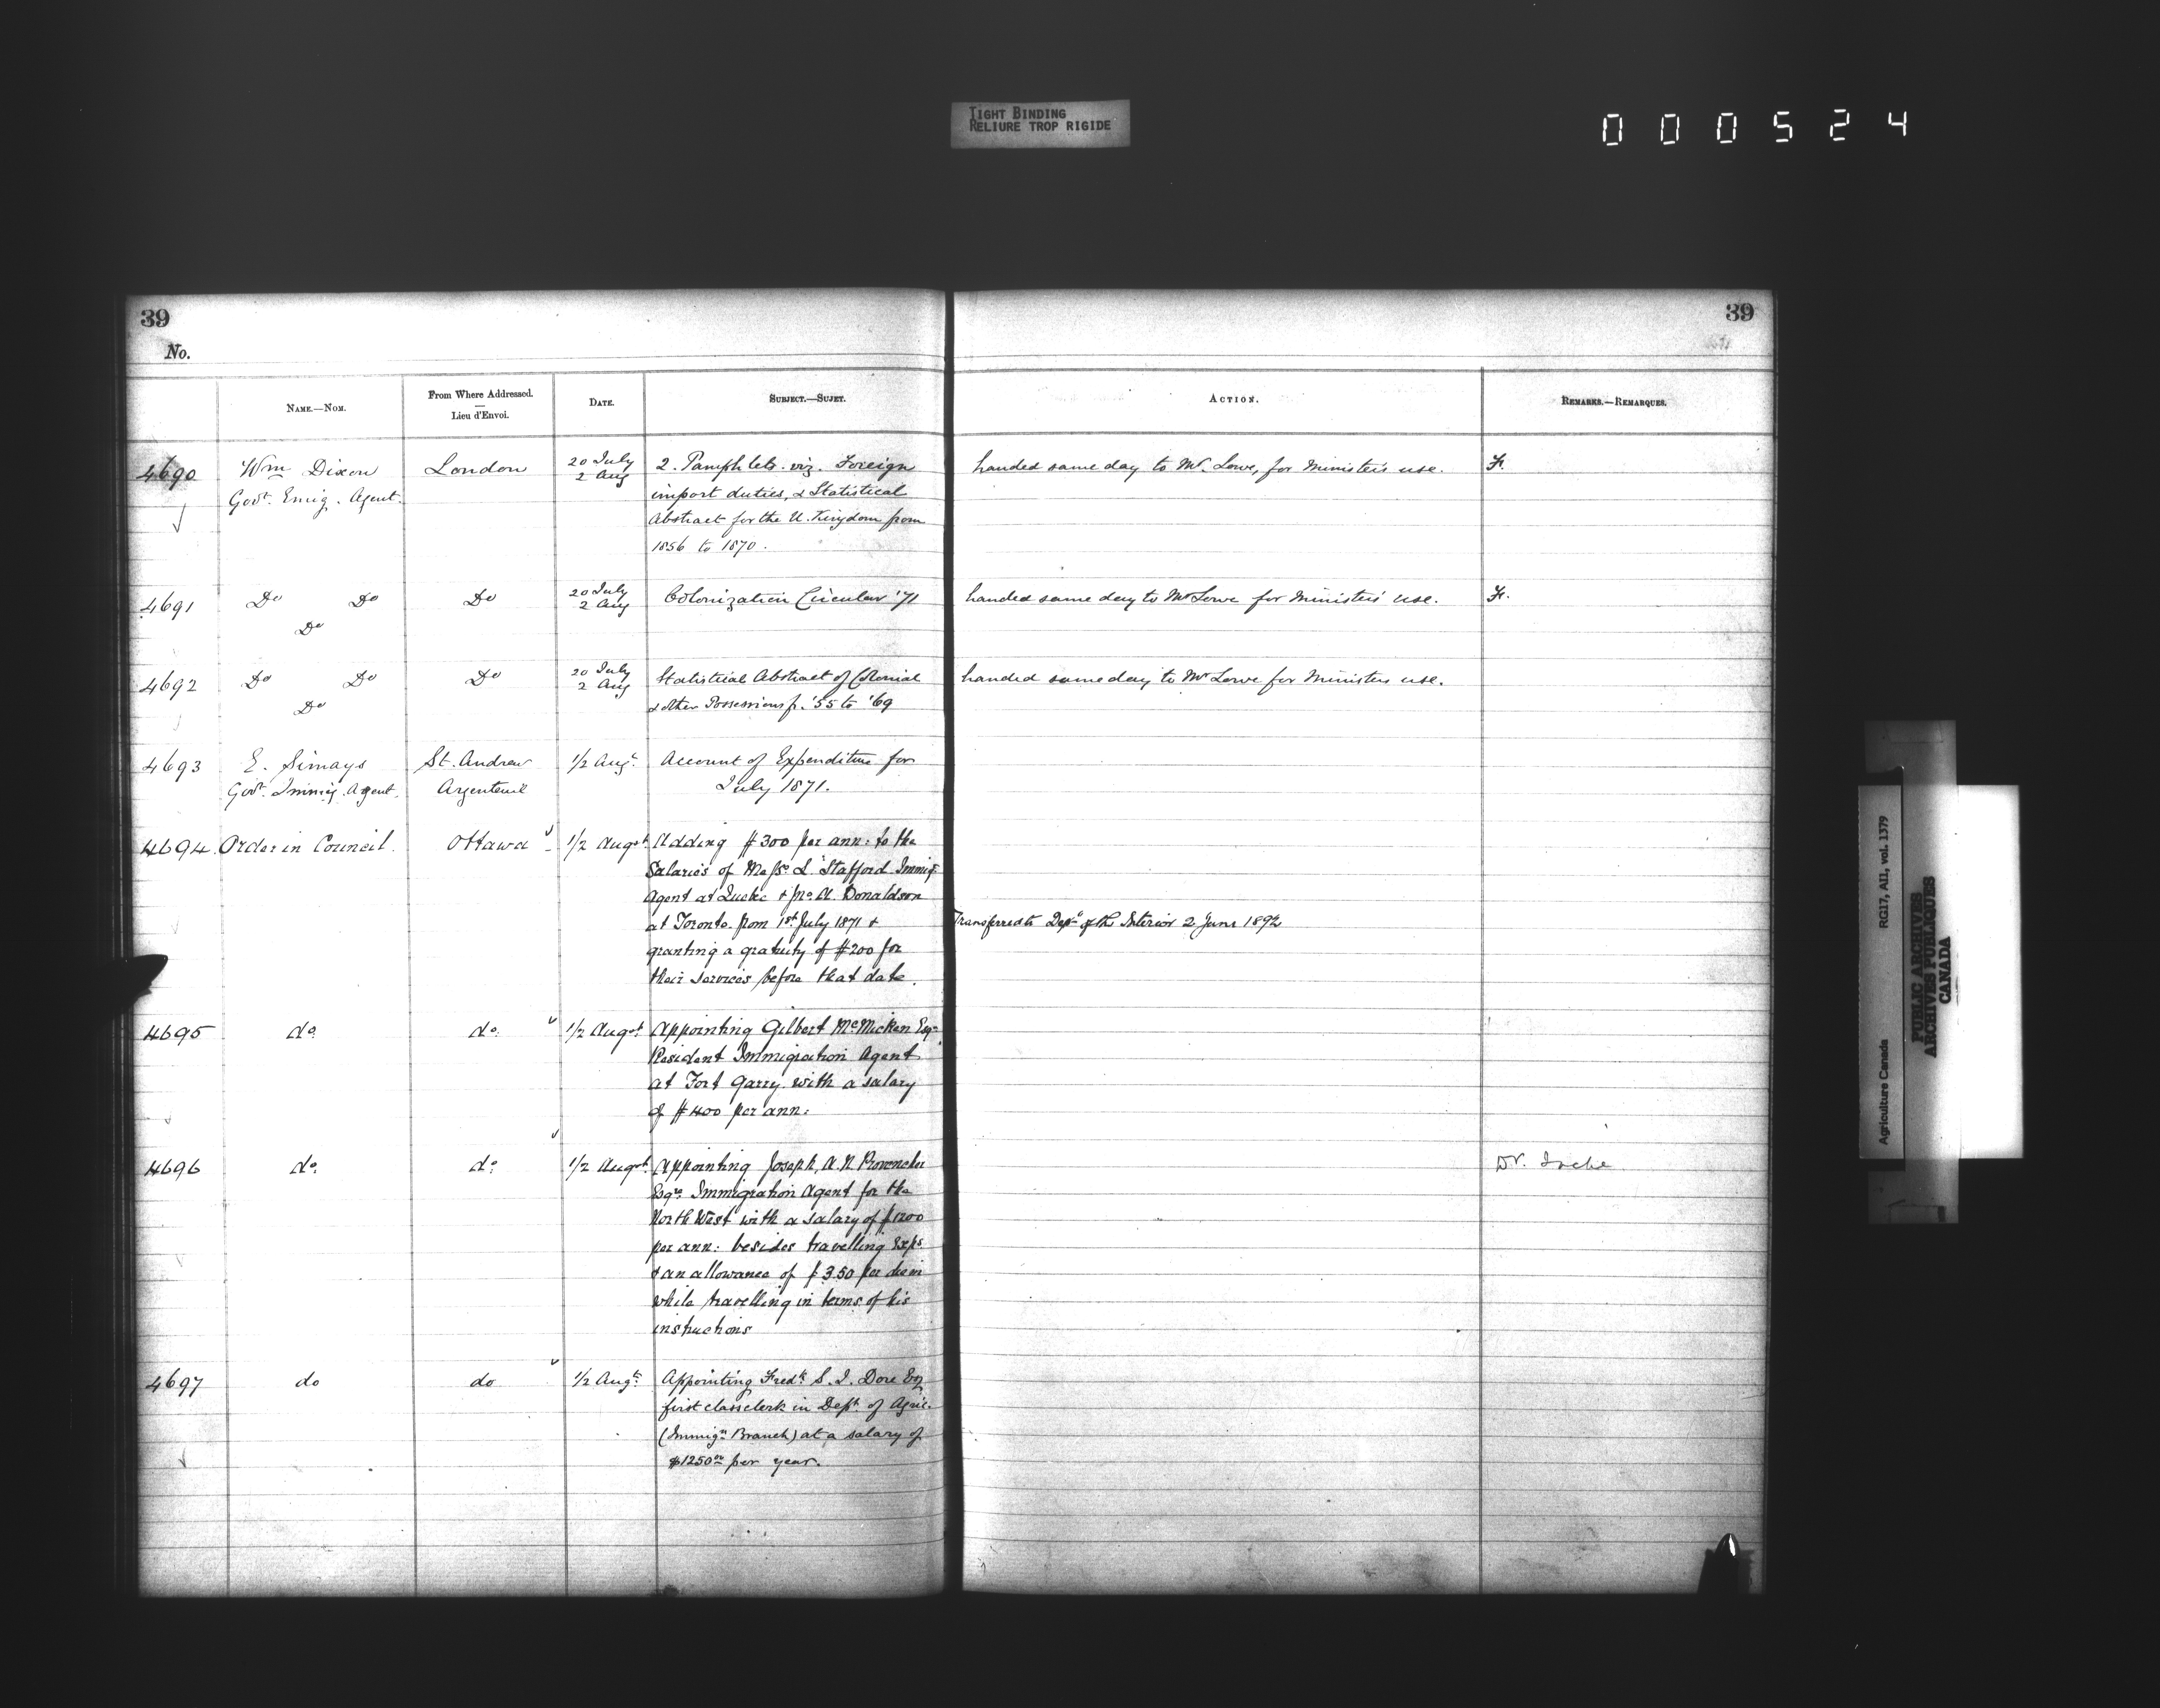 TIGHT BINDING
RELIURE TROP RIGIDE
000524
39
39
No.
NAME.—NOM.
From Where Addressed.
Lieu d'Envoi.
DATE.
SUBJECT.—SUJET.
ACTION.
REMARKS.—REMARQUES.
4690
Wm Dixon
Govt. Emig. Agent.
London
20 July
2 Aug
2. Pamphlets. viz. Foreign
import duties, & Statistical
Abstract for the U. Kingdom from
1856 to 1870.
handed same day to Mr. Lowe, for Minister's use.
F.
4691
Do Do
Do
Do
20 July
2 Aug
Colonization Circular '71
handed same day to Mr Lowe for Minister's use.
F.
4692
Do Do
Do
Do
20 July
2 Aug
Statistical Abstract of Colonial
& other Possessions f. '55 to '69
handed same day to Mr Lowe for Ministers use.
4693
E. Simays
Govt. Immig. Agent.
St. Andrew
Argenteuil
1/2 Augt.
Account of Expenditure for
July 1871.
4694
Order in Council.
Ottawa
1/2 Augst
Adding $300 per ann: to the
Salaries of Messrs. L. Stafford Immigt
Agent at Quebec & Jno. A. Donaldson
at Toronto from 1st July 1871 &
granting a gratuity of $200 for
their services before that date.
Transferred to Dept of the Interior 2 June 1892
4695
do.
do.
1/2 Augst
Appointing Gilbert McMicken Esqre
Resident Immigration Agent
at Fort Garry with a salary
of $400 per ann:
4696
do.
do.
1/2 Augst
Appointing Joseph, A. N. Provencher
Esqre. Immigration Agent for the
North West with a salary of $1200
per ann: besides travelling Exps
& an allowance of $3.50 per diem
while travelling in terms of his
instructions
Dr. Tache
4697
do
do
1/2 Augt.
Appointing Fredk. S. I. Dore Esq
first class clerk in Dept. of Agric.
(Immign. Branch) at a salary of
$1250.00 per year.
Agriculture Canada RG17, AII, vol. 1379
PUBLIC ARCHIVES
ARCHIVES PUBLIQUES
CANADA